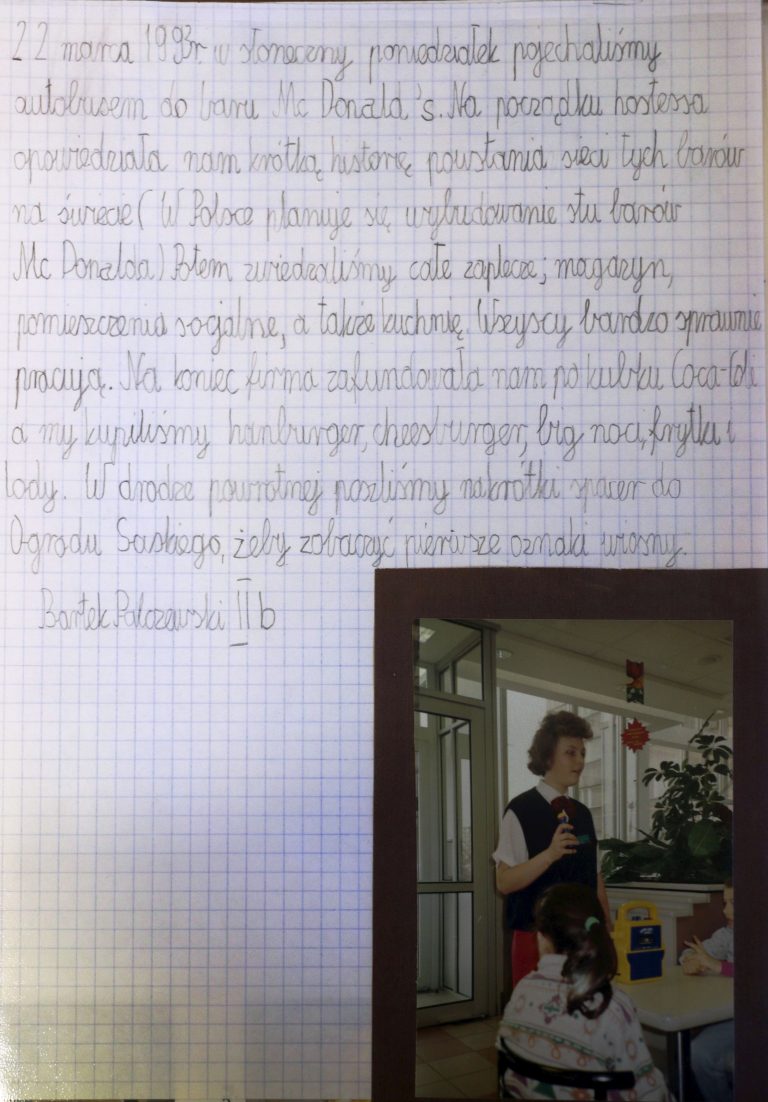 22 marca 1993r. w słoneczny poniedziałek pojechaliśmy
autobusem do baru Mc Donald's. Na początku hostessa
opowiedziała nam krótką historię powstania sieci tych barów
na świecie ( W Polsce planuje się wybudowanie stu barów
Mc Donalda) Potem zwiedzaliśmy całe zaplecze; magazyn,
pomieszczenia socjalne, a także kuchnię. Wszyscy bardzo sprawnie
pracują. Na koniec firma zafundowała nam po kubku Coca-Coli
a my kupiliśmy hanburger, cheesburger, big noci, frytki i
lody. W drodze powrotnej poszliśmy na krótki spacer do
Ogrodu Saskiego, żeby zobaczyć pierwsze oznaki wiosny.
Bartek Palczewski II b